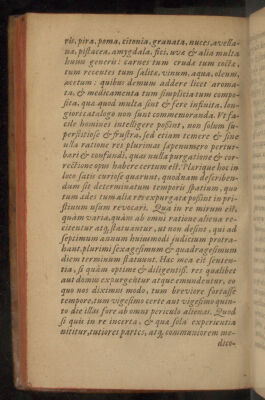 ris, pira, poma, citonia, granata, nuces, avella-
na, pistacea, amygdala, fici, uvæ & alia multa
huius generis: carnes tum crudæ tum coctæ,
tum recentes tum salitæ, vinum, aqua, oleum,
acetum: quibus demum addere licet aroma-
ta, & medicamenta tum simplicia tum compo-
sita, quæ quod multa sint & fere infinita, lon-
giore catalogo non sunt commemoranda. Vt fa-
cile homines intelligere possint, non solum su-
perstitiosè & frustra, sed etiam temere & sine
ulla ratione res plurimas sæpenumero pertur-
bari & confundi, quæ nulla purgatione & cor-
rectione opus habere certum est. Plærique hoc in
loco satis curiose quærunt, quodnam describen-
dum sit determinatum temporis spatium, quo
tum ædes tum aliæ res expurgatæ possint in pri-
stinum usum revocari. Qua in re mirum est,
quàm varia, quàm ab omni ratione aliena re-
citentur atq; statuantur, ut non desint, qui ad
septimum annum huiusmodi iudicium protra-
hant, plurimi sexagesimum & quadragesimum
diem terminum statuunt. Hæc mea est senten-
tia, si quàm optime & diligentiss. res quælibet
aut domus expurgentur atque emundentur, eo
quo nos diximus modo, tum breviore fortasse
tempore, tum vigesimo certe aut vigesimo quin-
to die illas fore ab omni periculo alienas. Quod
si quis in re incerta, & quæ sola experientia
nititur, tutiores partes, atq; communiorem me-
dico-